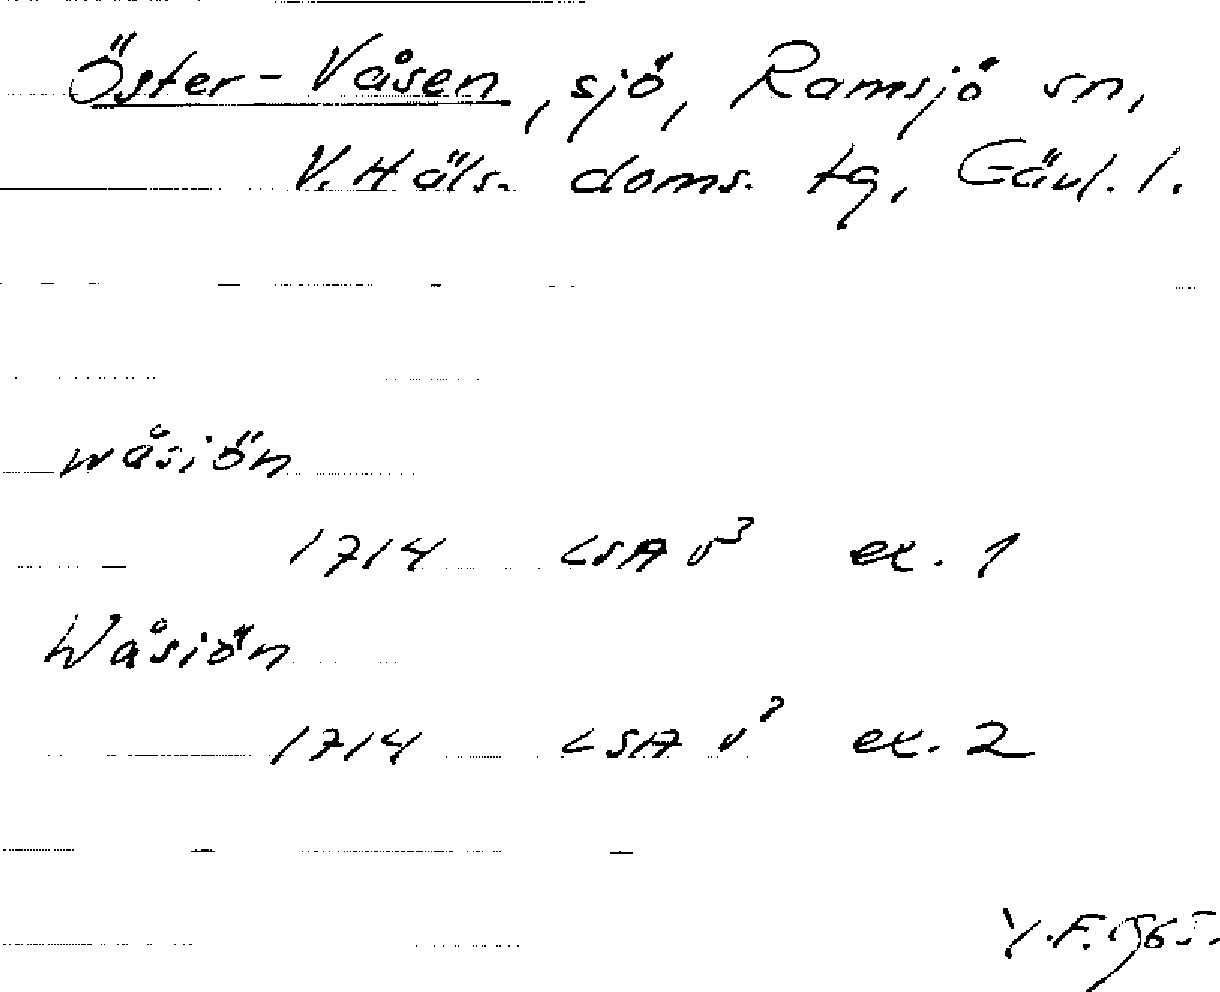 Öster-Våsen, sjö, Ramsjö sn,
V. Häls. doms. tg, Gävl. l.
wåsiön
1714 LSA v³ ex. 1
Wåsiön
1714 LSA v³ ex. 2
Y.F. 1965.